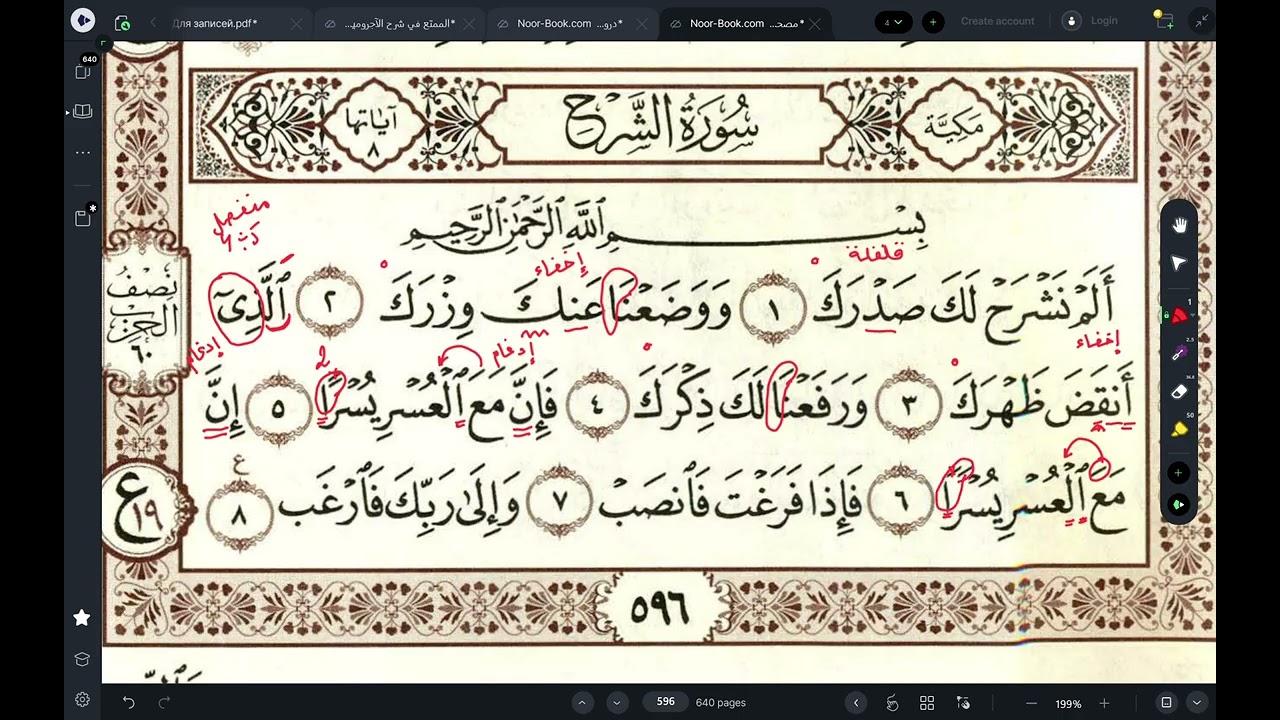 Для записей.pdf*
الممتع في شرح الآجرومي...*
Noor-Book.com درو...*
Noor-Book.com مصحـ...*
4
Create account
Login
640
مَكِيَّة
سُورَةُ الشَّرْحِ
آيَاتُهَا ٨
بِسْمِ ٱللَّهِ ٱلرَّحْمَٰنِ ٱلرَّحِيمِ
منفصل
قلقلة
إخفاء
أَلَمْ نَشْرَحْ لَكَ صَدْرَكَ ١ وَوَضَعْنَا عَنكَ وِزْرَكَ ٢ ٱلَّذِىٓ
نِصْفُ الحِزْبِ ٦٠
إخفاء
إدغام
إدغام
2
أَنقَضَ ظَهْرَكَ ٣ وَرَفَعْنَا لَكَ ذِكْرَكَ ٤ فَإِنَّ مَعَ ٱلْعُسْرِ يُسْرًا ٥ إِنَّ
مَعَ ٱلْعُسْرِ يُسْرًا ٦ فَإِذَا فَرَغْتَ فَٱنصَبْ ٧ وَإِلَىٰ رَبِّكَ فَٱرْغَب ٨
ع
ع ١٩
٥٩٦
1
2.5
36.8
50
596
640 pages
199%